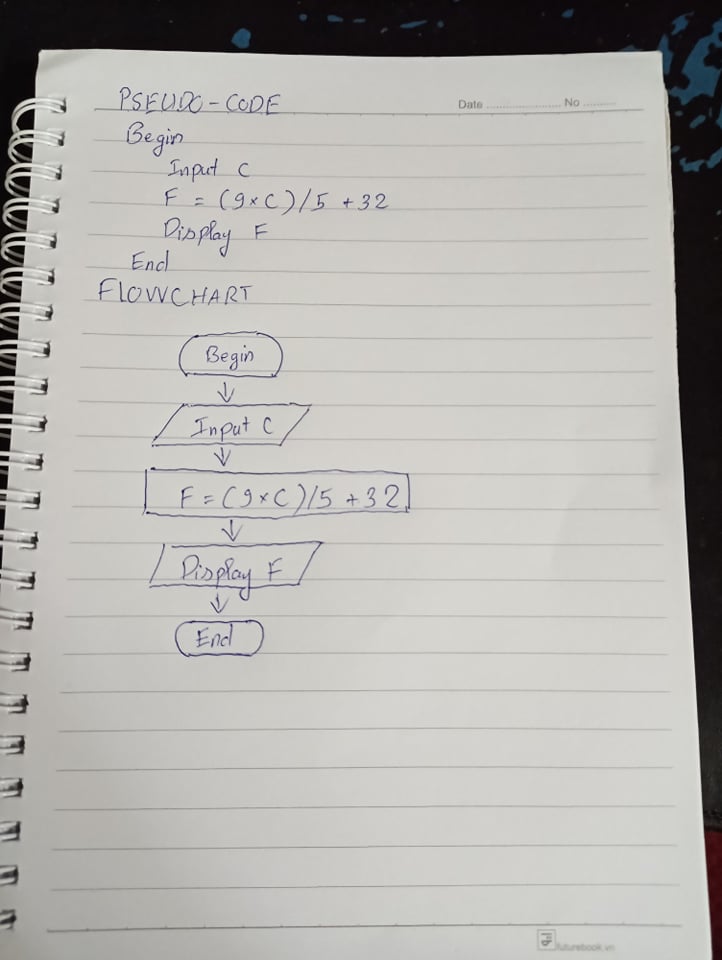 PSEUDO-CODE
Date .................... No .........
Begin
Input C
F = (9×C)/5 +32
Display F
End
FLOWCHART
Begin
Input C
F = (9×C)/5 +32
Display F
End
futurebook.vn